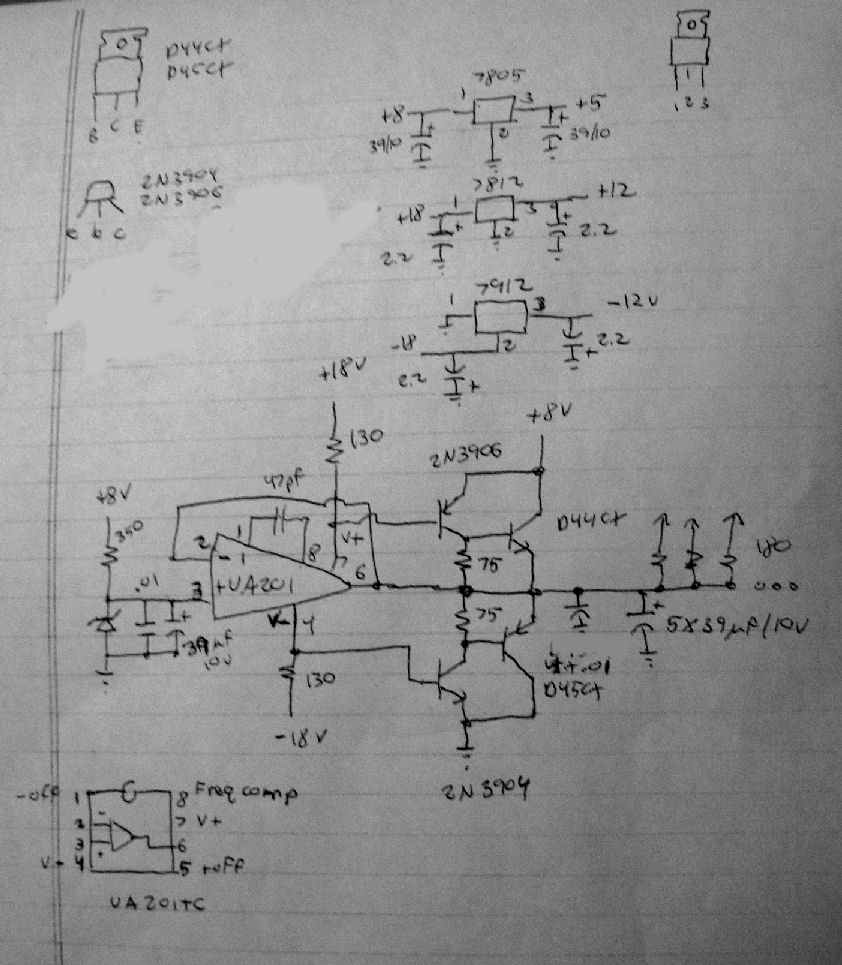 D44Ct
D45Ct
B C E
1 2 3
2N3904
2N3906
e b c
7805
+8 1 3 +5
2
39/10 39/10
7812
+18 1 3 +12
2
2.2 2.2
7912
1 3 -12V
-18 2
2.2 2.2
+18V
130
+8V
2N3906
47pf
+8V
350
1 8 V+ 7
2
D44Ct
.01 3 UA201 6
75
180
75
V- 4
39µF
10V
5X39µF/10V
130
4+.01
D45Ct
-18V
2N3904
-off 1 8 Freq comp
2 7 V+
3 6
V- 4 5 +off
UA201TC